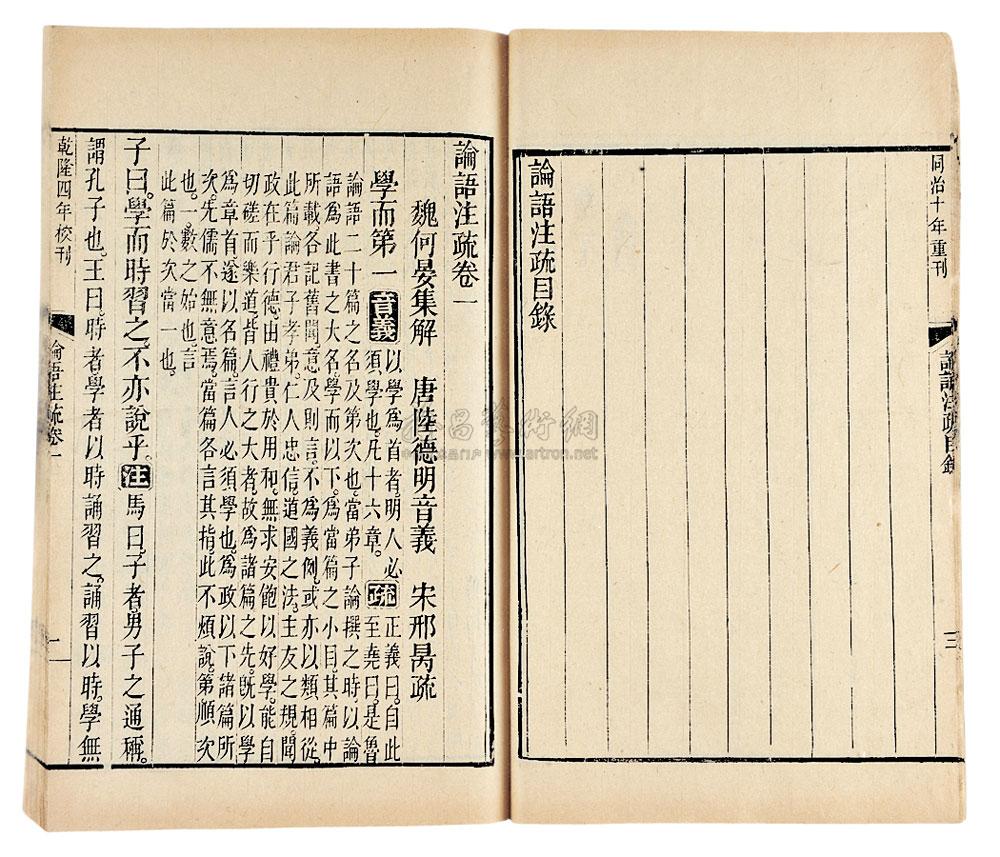 同治十年重刊
論語注疏目錄
三
論語注疏目錄
論語注疏卷一
魏何晏集解　唐陸德明音義　宋邢昺疏
學而第一 音義
以學爲首者。明人必
須學也。凡十六章。
疏
正義曰。自此
至堯曰。是魯
論語二十篇之名及第次也。當弟子論撰之時。以論
語爲此書之大名。學而以下。爲當篇之小目。其篇中
所載。各記舊聞。意及則言。不爲義例。或亦以類相從。
此篇論君子孝弟。仁人忠信。道國之法。主友之規。聞
政在乎行德。由禮貴於用和。無求安飽以好學。能自
切磋而樂道。皆人行之大者。故爲諸篇之先。旣以學
爲章首。遂以名篇。言人必須學也。爲政以下諸篇所
次。先儒不無意焉。當篇各言其指。此不煩說。第順次
也。一。數之始也。言
此篇於次當一也。
子曰。學而時習之。不亦說乎。注馬曰。子者。男子之通稱。
謂孔子也。王曰。時者。學者以時誦習之。誦習以時。學無
乾隆四年校刊
論語注疏卷一
二
昌藝術網
www.artron.net